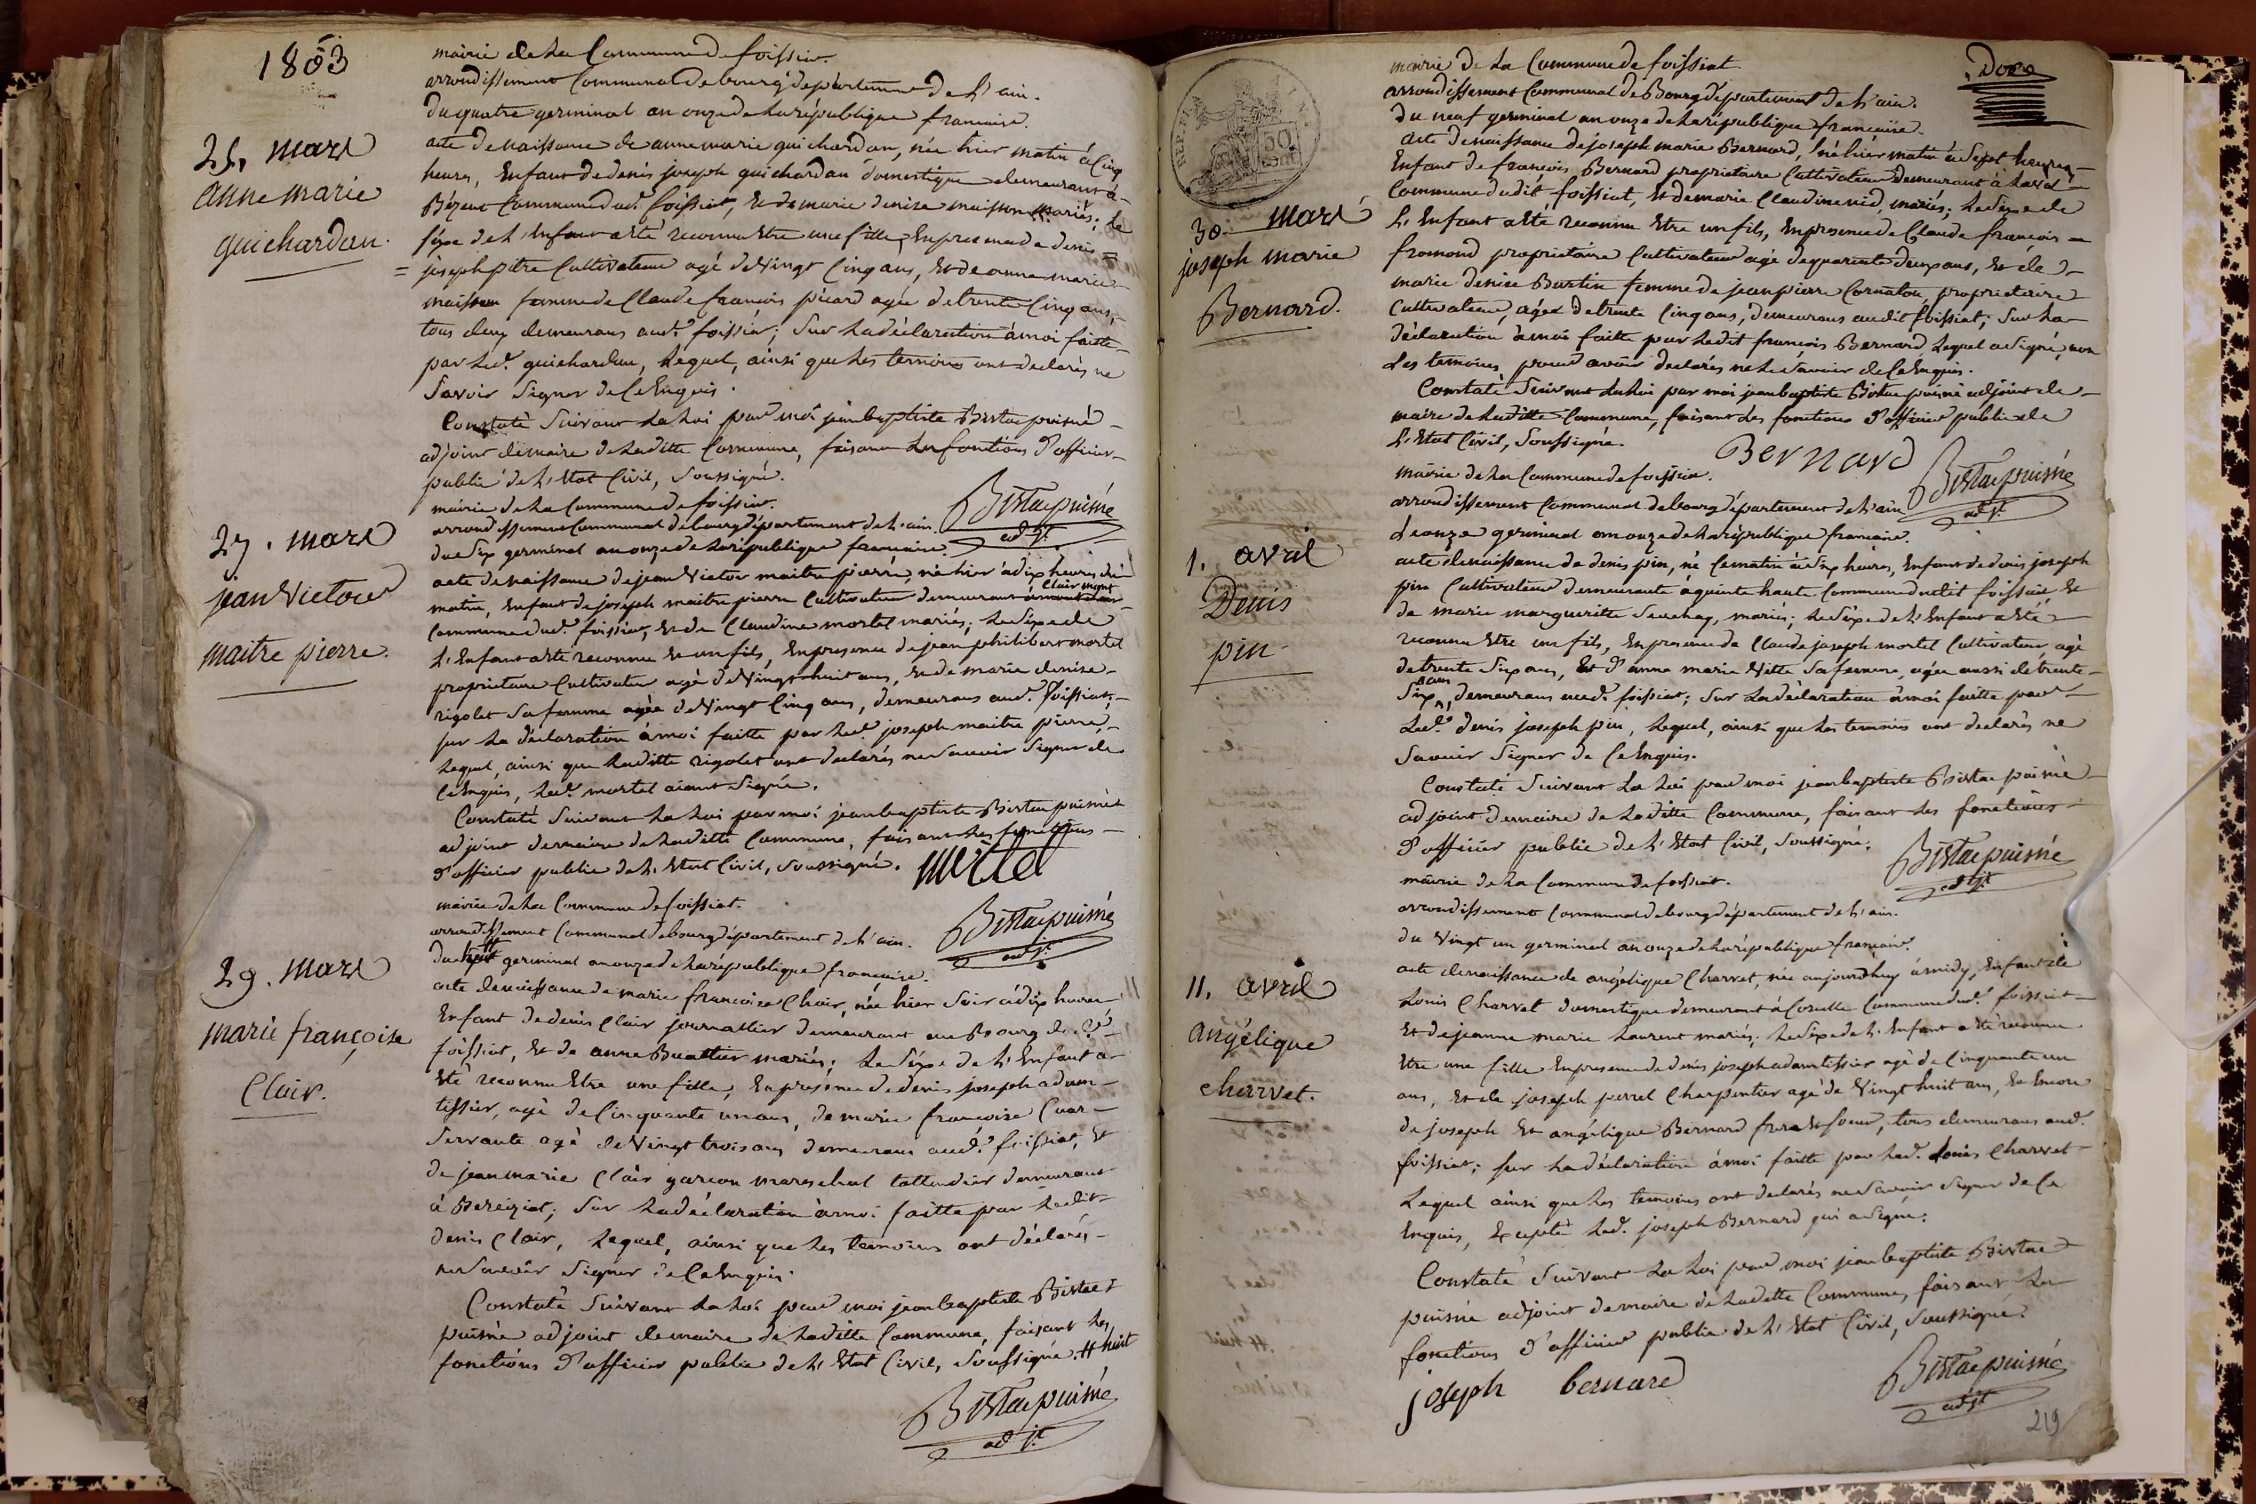 1803
mairie de la Commune de foissiat.
arrondissement Communal de bourg département de l'ain.
du quatre germinal an onze de la république francaise.
25. mars
anne marie
guichardan.
acte de naissance de anne marie guichardan, née hier matin à Cinq
heures, Enfant de denis joseph guichardan domestique demeurant à
Bézent Commune dud. foissiat, Et de marie denise maisson mariés; le
séxe de l'Enfant a Eté reconnu Etre une fille, En presence de denis =
= joseph pitre Cultivateur agé de Vingt Cinq ans, Et de anne marie
maisson femme de Claude francois picard agée de trente Cinq ans,
tous deux demeurans aud. foissiat; Sur la déclaration à moi faitte
par led. guichardan, lequel, ainsi que les temoins ont declarés ne
Savoir Signer de Ce Enquis.
Constaté Suivant la loi par moi jean baptiste Bistac puisné
adjoint de maire de laditte Commune, faisant les fonctions d'officier
public de l'Etat Civil, Soussigné.
Bistac puisné
adjt.
mairie de la Commune de foissiat.
arrondissement Communal de bourg département de l'ain.
du Six germinal an onze de la république francaise.
27. mars
jean Victor
maitre pierre.
acte de naissance de jean Victor maitre pierre, né hier à dix heures du
matin, Enfant de joseph maitre pierre Cultivateur demeurant Clairmont
Commune dud. foissiat, Et de Claudine mortel mariés; le Séxe de
l'Enfant a Eté reconnu Et un fils, En presence de jean philibert mortel
proprietaire Cultivateur agé de Vingt huit ans, Et de marie denise
rigolet Sa femme agée de Vingt Cinq ans, demeurans aud. foissiat;
sur la déclaration à moi faitte par led. joseph maitre pierre,
lequel, ainsi que laditte rigolet ont declarés ne Savoir Signer de
Ce Enquis, led. mortel aiant Signé.
Constaté Suivant la loi par moi jean baptiste Bistac puisné
adjoint de maire de laditte Commune, faisant les fonctions
d'officier public de l'Etat Civil, Soussigné.
mortel
Bistac puisné
adjt.
mairie de la Commune de foissiat.
arrondissement Communal de bourg département de l'ain.
du # germinal an onze de la république francaise.
29. mars
marie françoise
Clair.
acte de naissance de marie francoise Clair, née hier Soir à dix heures
Enfant de denis Clair journallier demeurant au Bourg de
foissiat, Et de anne Buattier mariés; le Séxe de l'Enfant a
Eté reconnu Etre une fille, En presence de denis joseph adam
tissier, agé de Cinquante un ans, de marie francoise
Servante agé de Vingt trois ans demeurans aud. foissiat, Et
de jean marie Clair garcon mareschal tallendier demeurant
à Bereiziat; Sur la déclaration à moi faitte par ledit
denis Clair, lequel, ainsi que les temoins ont déclarés
ne Savoir Signer de Ce Enquis.
Constaté Suivant la loi par moi jean baptiste Bistac
puisné adjoint de maire de laditte Commune, faisant les
fonctions d'officier public de l'Etat Civil, Soussigné. # huit
Bistac puisné
adjt.
mairie de la Commune de foissiat
arrondissement Communal de Bourg département de l'ain.
du neuf germinal an onze de la république francaise.
30. mars
joseph marie
Bernard.
acte de naissance de joseph marie Bernard, né hier matin à Sept heures
Enfant de francois Bernard proprietaire Cultivateur demeurant à
Commune dudit foissiat, Et de marie Claudine nid, mariés; le Séxe de
l'Enfant a Eté reconnu Etre un fils, En presence de Claude francois
fromond proprietaire Cultivateur agé de quarante deux ans, Et de
marie denise Burtin femme de jean pierre Cornaton, proprietaire
Cultivateur, agée de trente Cinq ans, demeurans audit foissiat; Sur la
déclaration à moi faitte par ledit francois Bernard lequel a Signé, non
les temoins, pour avoir declarés ne le Savoir de Ce Enquis.
Constaté Suivant la loi par moi jean baptiste Bistac puisné adjoint de
maire de laditte Commune, faisant les fonctions d'officier public de
l'Etat Civil, Soussigné.
Bernard
Bistac puisné
adjt.
mairie de la Commune de foissiat.
arrondissement Communal de bourg département de l'ain
d'onze germinal an onze de la république francaise.
1. avril
Denis
pin
acte de naissance de denis pin, né Ce matin à Six heures, Enfant de denis joseph
pin Cultivateur demeurant à quinte haute Commune dudit foissiat Et
de marie margueritte Sevchay, mariés; le Séxe de l'Enfant a Eté
reconnu Etre un fils, En presence de Claude joseph mortel Cultivateur agé
de trente Six ans, Et d'anne marie Vitte Sa femme, agée aussi de trente
Six ans, demeurans aud. foissiat; Sur la déclaration à moi faitte par
led. denis joseph pin, lequel, ainsi que les temoins ont declarés ne
Savoir Signer de Ce Enquis.
Constaté Suivant la loi par moi jean baptiste Bistac puisné
adjoint de maire de laditte Commune, faisant les fonctions
d'officier public de l'Etat Civil, Soussigné.
Bistac puisné
adjt.
mairie de la Commune de foissiat.
arrondissement Communal de bourg département de l'ain.
du Vingt un germinal an onze de la république francaise.
11. avril
angélique
charvet.
acte de naissance de angélique Charvet, née aujourdhuy à midy, Enfant de
Louis Charvet domestique demeurant à Cozette Commune dud. foissiat
Et de jeanne marie Laurent mariés; le Séxe de l'Enfant a Eté reconnu
Etre une fille En presence de denis joseph adam tissier agé de Cinquante un
ans, Et de joseph perret Charpentier agé de Vingt huit ans, Et Encore
de joseph Et angélique Bernard frere Et soeur, tous demeurans aud.
foissiat; sur la déclaration à moi faitte par led. Louis Charvet
lequel ainsi que les temoins ont declarés ne Savoir Signer de Ce
Enquis, Excepté led. joseph Bernard qui a Signé.
Constaté Suivant la loi par moi jean baptiste Bistac
puisné adjoint de maire de laditte Commune, faisant les
fonctions d'officier public de l'Etat Civil, Soussigné.
joseph bernard
Bistac puisné
adjt.
219